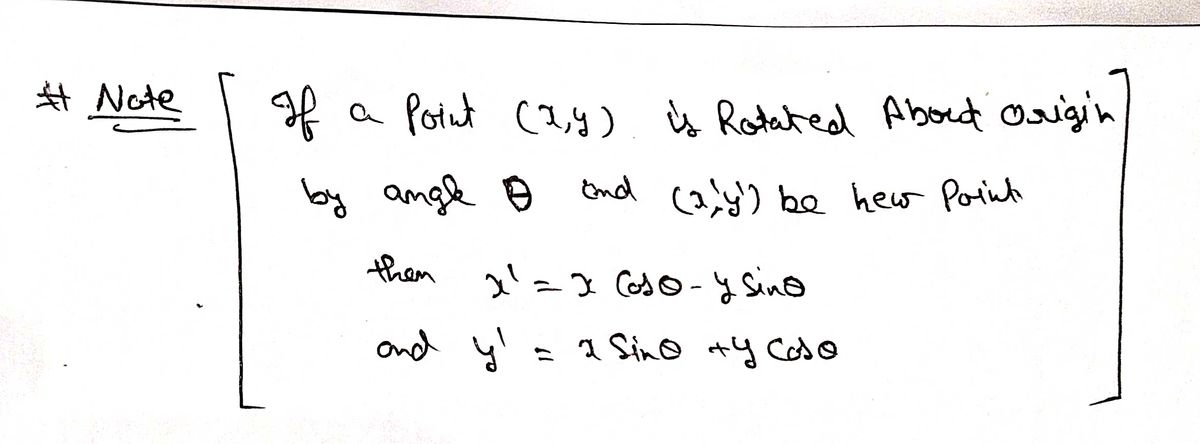 # Note
If a Point (x,y) is Rotated About origin
by angle θ and (x',y') be new Point
then x' = x Cosθ - y Sinθ
and y' = x Sinθ + y Cosθ